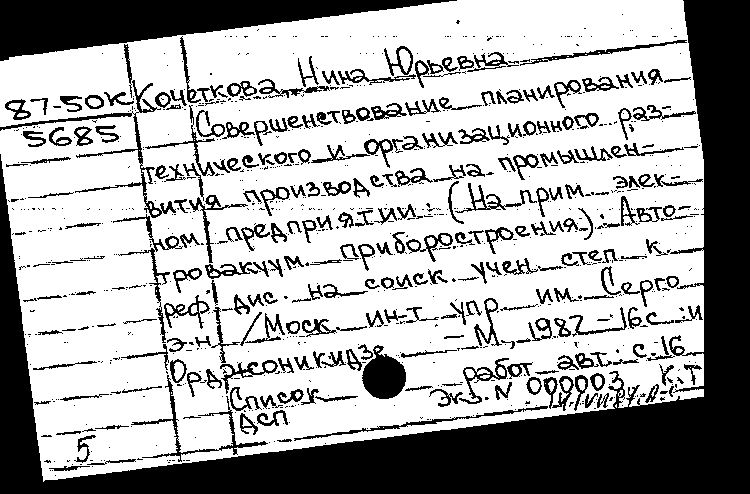 87-50к Кочеткова, Нина Юрьевна
5685 Совершенствование планирования
технического и организационного раз-
вития производства на промышлен-
ном предприятии: (На прим. элек-
тровакуум. приборостроения): Авто-
реф. дис. на соиск. учен. степ. к.
э.н. /Моск. ин-т упр. им. Серго
Орджоникидзе – М., 1987 – 16с.: и
Список работ авт.: с.16
ДСП Экз. N 000003 К.Т
5